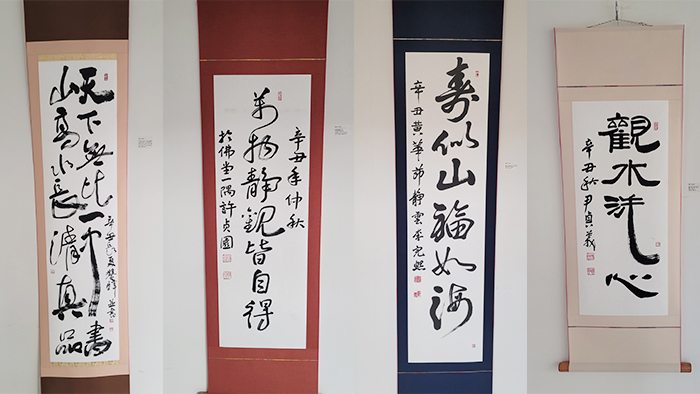 天下無比一書
山高水長清真品
辛丑秋
辛丑年仲秋
萬物靜觀皆自得
於佛堂一隅許貞園
壽似山福如海
辛丑黃華節靜雲
觀水洗心
辛丑秋尹貞義